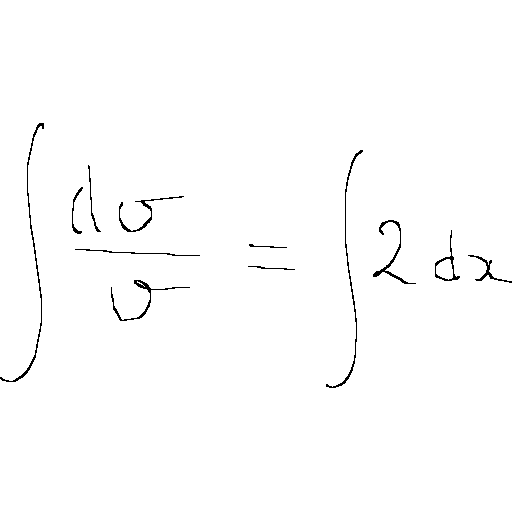 \int \frac{d\sigma}{\sigma} = \int 2 dx